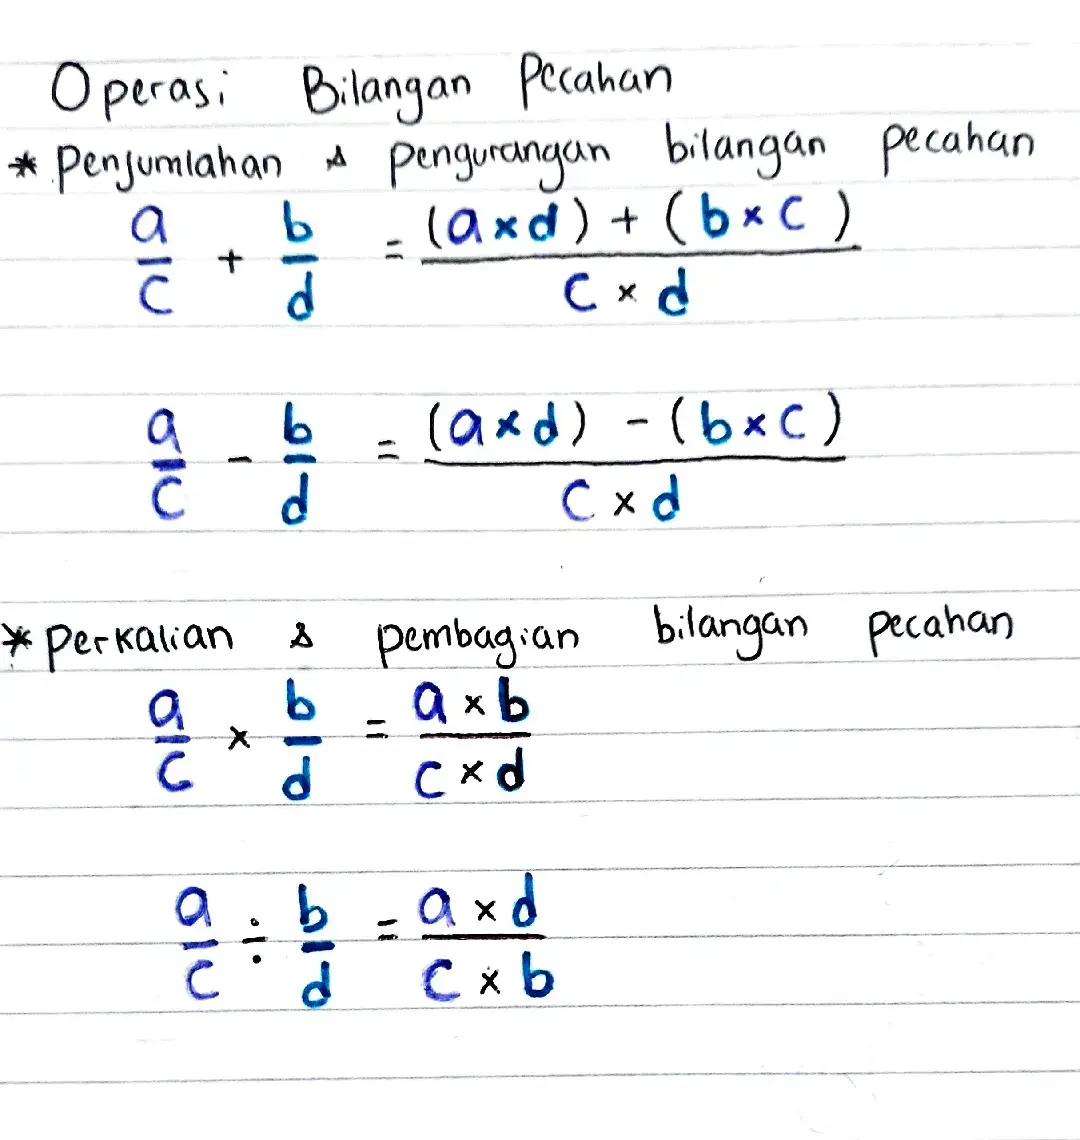 Operasi Bilangan Pecahan
* Penjumlahan & pengurangan bilangan pecahan
a/c + b/d = (a x d) + (b x c) / c x d
a/c - b/d = (a x d) - (b x c) / c x d
* Perkalian & pembagian bilangan pecahan
a/c x b/d = a x b / c x d
a/c ÷ b/d = a x d / c x b